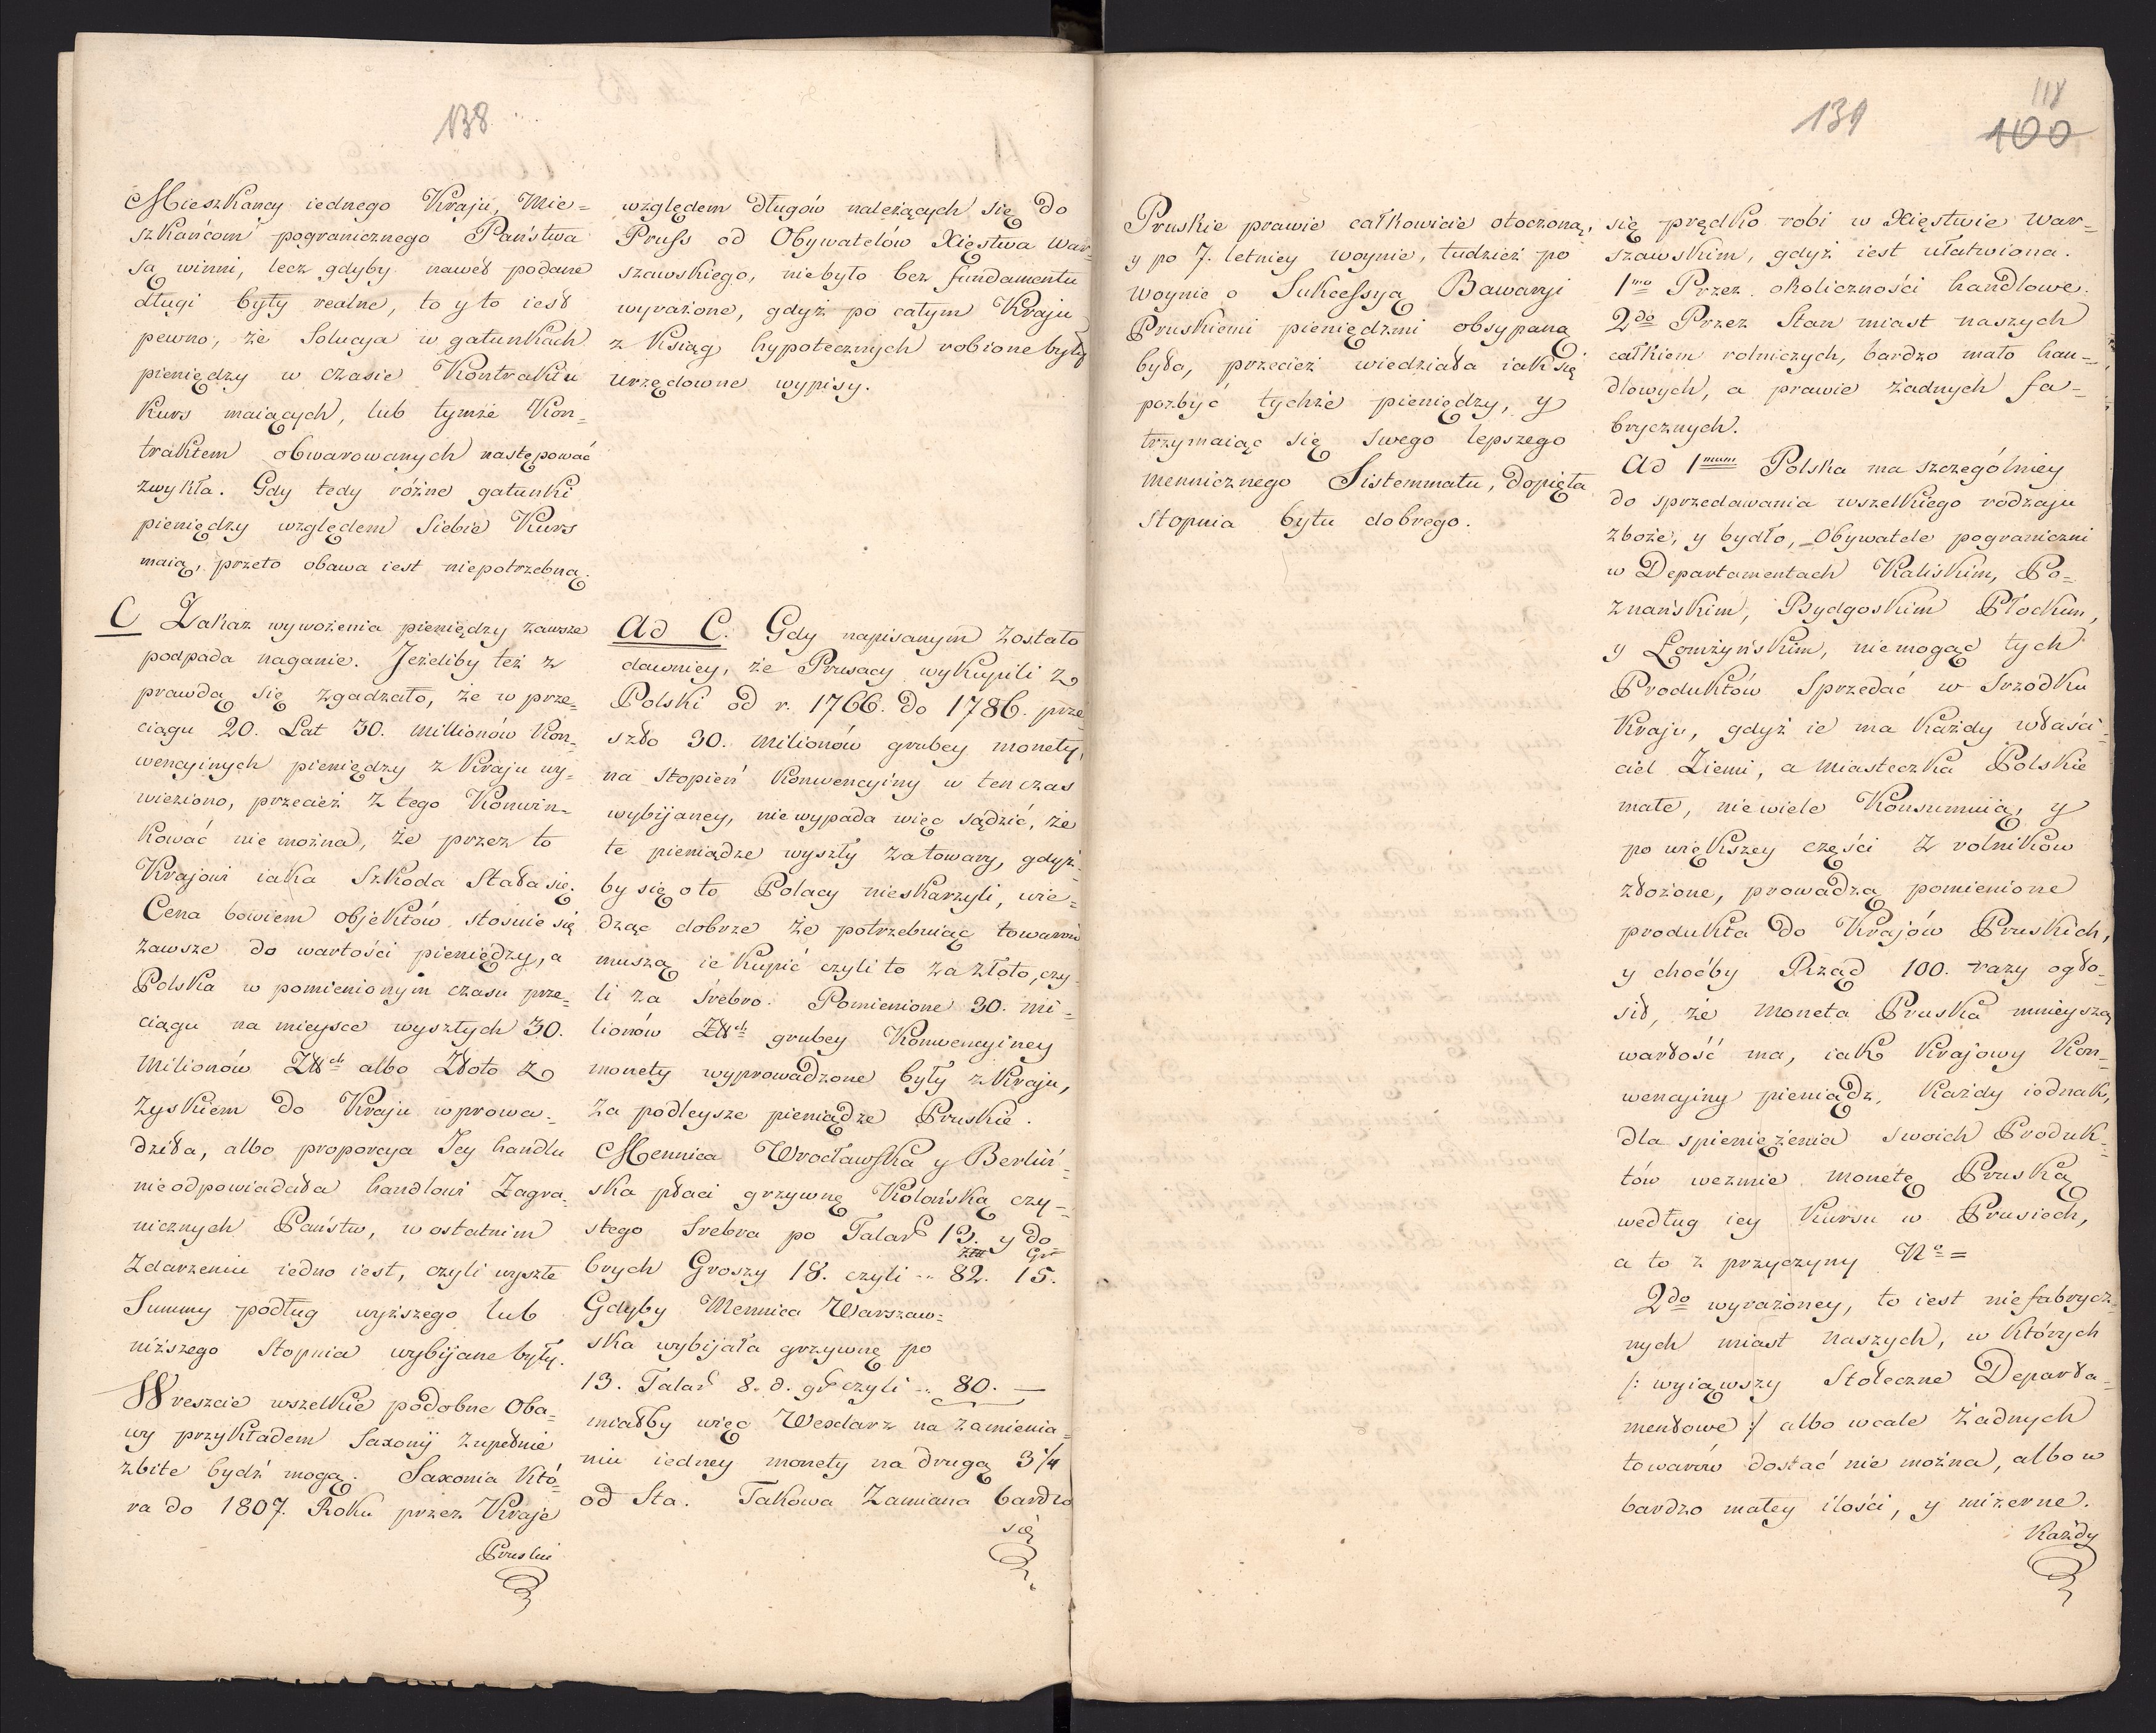 138
Mieszkańcy iednego Kraju, Mie=
szkańcom pogranicznego Państwa
są winni, lecz gdyby nawet podane
długi były realne, to y to iest
pewno, że Solucya w gatunkach
pieniędzy w czasie Kontraktu
Kurs maiących, lub tymże Kon=
traktem obwarowanych następować
zwykła. Gdy tedy różne gatunki
pieniędzy względem siebie Kurs
maią, przeto obawa iest niepotrzebną.
C Zakaz wywożenia pieniędzy zawsze
podpada naganie. Jeżeliby też z
prawdą się zgadzało, że w prze=
ciągu 20. Lat 30. millionów Kon=
wencyinych pieniędzy z Kraju wy=
wieziono, przecież z tego Konwin=
kować nie można, że przez to
Krajowi iaka Szkoda Stała się.
Cena bowiem objektów stosuie się
zawsze do wartości pieniędzy, a
Polska w pomienionym czasu prze=
ciągu na mieysce wyszłych 30.
Milionów Złtch albo Złoto z
zyskiem do Kraju wprowa=
dziła, albo proporcya Jey handlu
nieodpowiadała handlowi Zagra=
nicznych Państw, w ostatnim
Zdarzeniu iedno iest, czyli wyszłe
Summy podług wyższego lub
niższego Stopnia wybijane były.
Wreszcie wszelkie podobne Oba=
wy przykładem Saxonij zupełnie
zbite bydź mogą. Saxonia Któ=
ra do 1807. Roku przez Kraje
Pruskie
względem długów należących się do
Pruss od Obywatelów Xięstwa War=
szawskiego, niebyło bez fundamentu
wyrażone, gdyż po całym Kraju
z Ksiąg hypotecznych robione były
urzędowne wypisy.
Ad C. Gdy napisanym zostało
dawniey, że Prusacy wykupili z
Polski od r. 1766. do 1786. prze
szło 30. milionów grubey monety,
na stopień Konwencyiny w ten czas
wybijaney, nie wypada więc sądzić, że
te pieniądze wyszły za towary, gdyż=
by się o to Polacy nieskarzyli, wie=
dząc dobrze że potrzebuiąc towarów
muszą ie kupić czyli to za złoto, czy=
li za Srebro. Pomienione 30. mi=
lionów Złch grubey Konwencyiney
monety wyprowadzone były z Kraju,
za podleysze pieniądze Pruskie.
Mennica Wrocławska y Berliń=
ska płaci grzywnę Kolońską czy=
stego Srebra po Talar 13. y do
Złtt Gr
brych Groszy 18. czyli .. 82. 15.
Gdyby Mennica Warszaw=
ska wybijała grzywnę po
13. Talar 8. d. gr czyli .. 80. —
miałby więc Wexlarz na zamienia=
niu iedney monety na drugą 3 1/4
od Sta. Takowa Zamiana bardzo
się
139
118
100
Pruskie prawie całkowicie otoczoną,
y po 7. letniey woynie, tudzież po
woynie o Sukcessyą Bawaryi
Pruskiemi pieniędzmi obsypaną
była, przecież wiedziała iak się
pozbyć tychże pieniędzy, y
trzymaiąc się swego lepszego
mennicznego Sistemmatu, dopięła
stopnia bytu dobrego.
się prędko robi w Xięstwie War=
szawskim, gdyż iest ułatwiona.
1mo Przez okoliczności handlowe.
2do Przez Stan miast naszych
całkiem rolniczych, bardzo mało han=
dlowych, a prawie żadnych fa=
brycznych.
Ad 1mum Polska ma szczególniey
do sprzedawania wszelkiego rodzaju
zboże, y bydło, Obywatele pograniczni
w Departamentach Kaliskim, Po=
znańskim, Bydgoskim Płockim,
y Łomżyńskim, niemogąc tych
Produktów Sprzedać w Srzodku
Kraju, gdyż ie ma Każdy właści=
ciel Ziemi, a Miasteczka Polskie
małe, niewiele Konsummuią, y
po większey części z rolników
złożone, prowadzą pomienione
produkta do Krajów Pruskich,
y choćby Rząd 100. razy ogło=
sił, że moneta Pruska mnieyszą
wartość ma, iak Krajowy Kon=
wencyiny pieniądz, Każdy iednak,
dla spieniężenia swoich Produk=
tów weźmie monetę Pruską
według iey Kursu w Prusiech,
a to z przyczyny No =
2do wyrażoney, to iest niefabrycz=
nych miast naszych, w których
/: wyiąwszy Stołeczne Departa=
mentowe :/ albo wcale żadnych
towarów dostać nie można, albo w
bardzo małey ilości, y mizerne.
Każdy